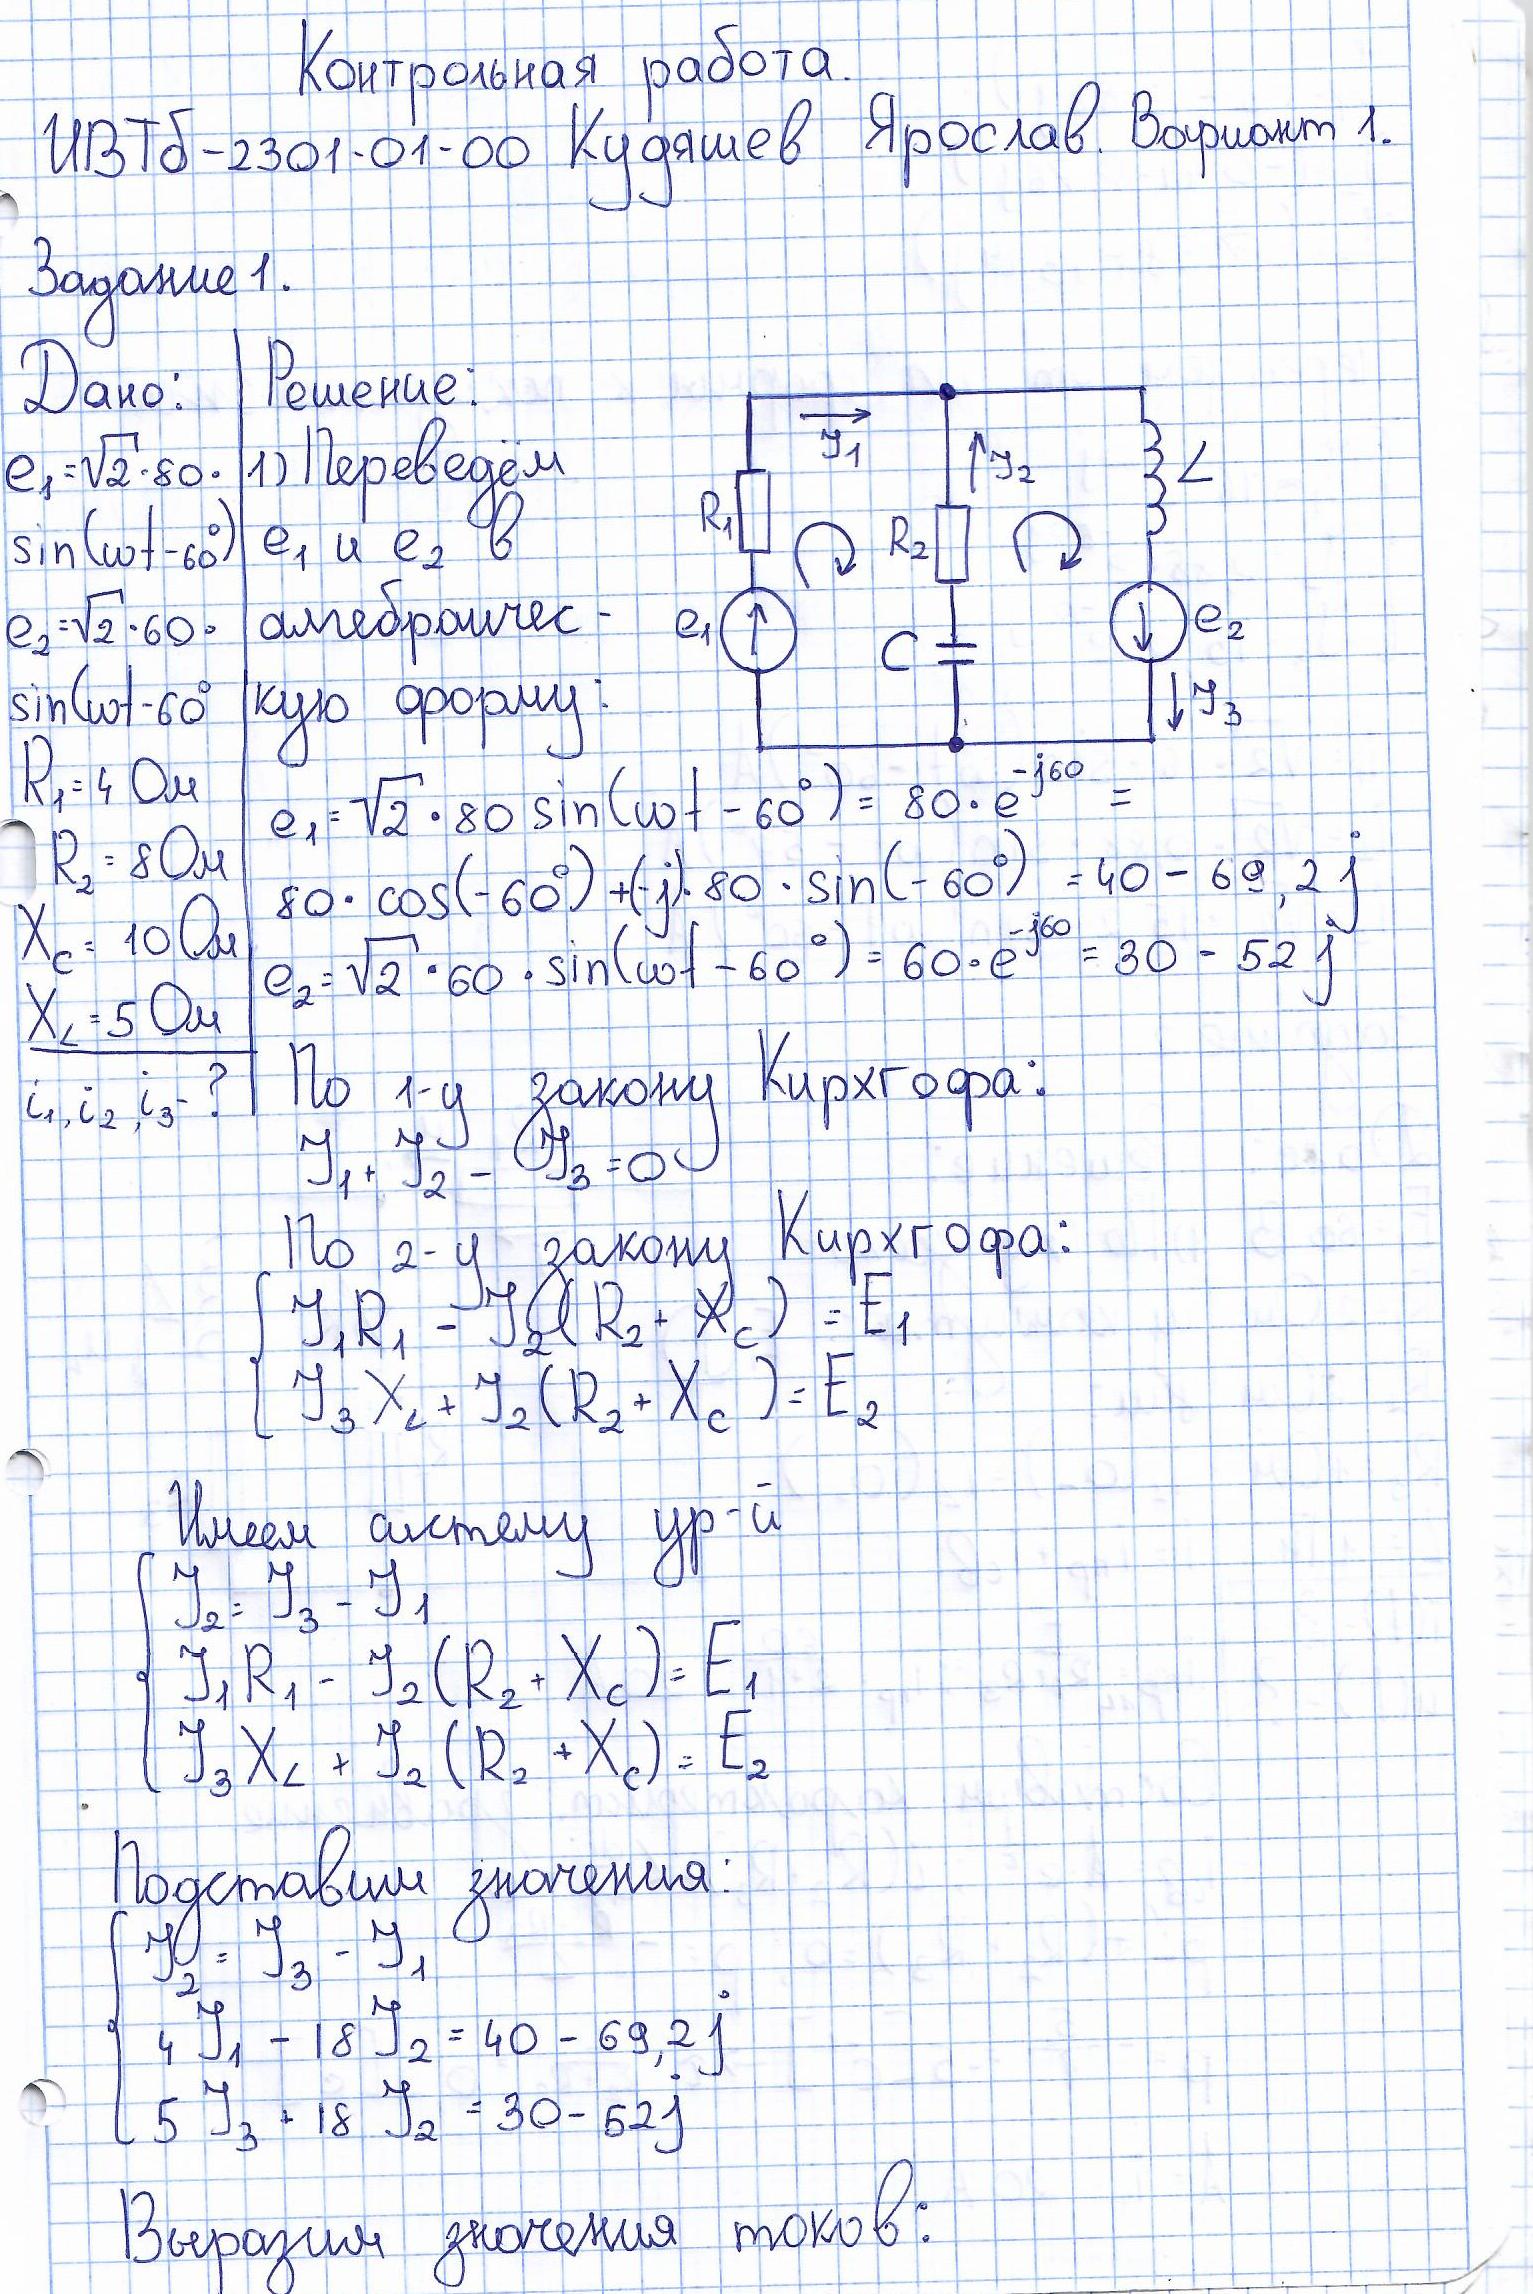 Контрольная работа.
ИВТб-2301-01-00 Кудяшев Ярослав. Вариант 1.
Задание 1.
Дано:
e₁=√2·80·
sin(ωt-60°)
e₂=√2·60·
sin(ωt-60°
R₁=4 Ом
R₂=8 Ом
X_C=10 Ом
X_L=5 Ом
i₁, i₂, i₃-?
Решение:
1) Переведём
e₁ и e₂ в
алгебраичес-
кую форму:
I₁
I₂
L
R₁
R₂
e₁
C
e₂
I₃
e₁=√2·80 sin(ωt-60°)= 80·e^(-j60) =
80·cos(-60°)+(-j)·80·sin(-60°) =40-69,2j
e₂=√2·60·sin(ωt-60°)= 60·e^(-j60) = 30-52j
По 1-у закону Кирхгофа:
I₁+I₂-I₃=0
По 2-у закону Кирхгофа:
I₁R₁-I₂(R₂+X_C)=E₁
I₃X_L+I₂(R₂+X_C)=E₂
Имеем систему ур-й
I₂=I₃-I₁
I₁R₁-I₂(R₂+X_C)=E₁
I₃X_L+I₂(R₂+X_C)=E₂
Подставим значения:
I₂=I₃-I₁
4I₁-18I₂=40-69,2j
5I₃+18I₂=30-52j
Выразим значения токов: